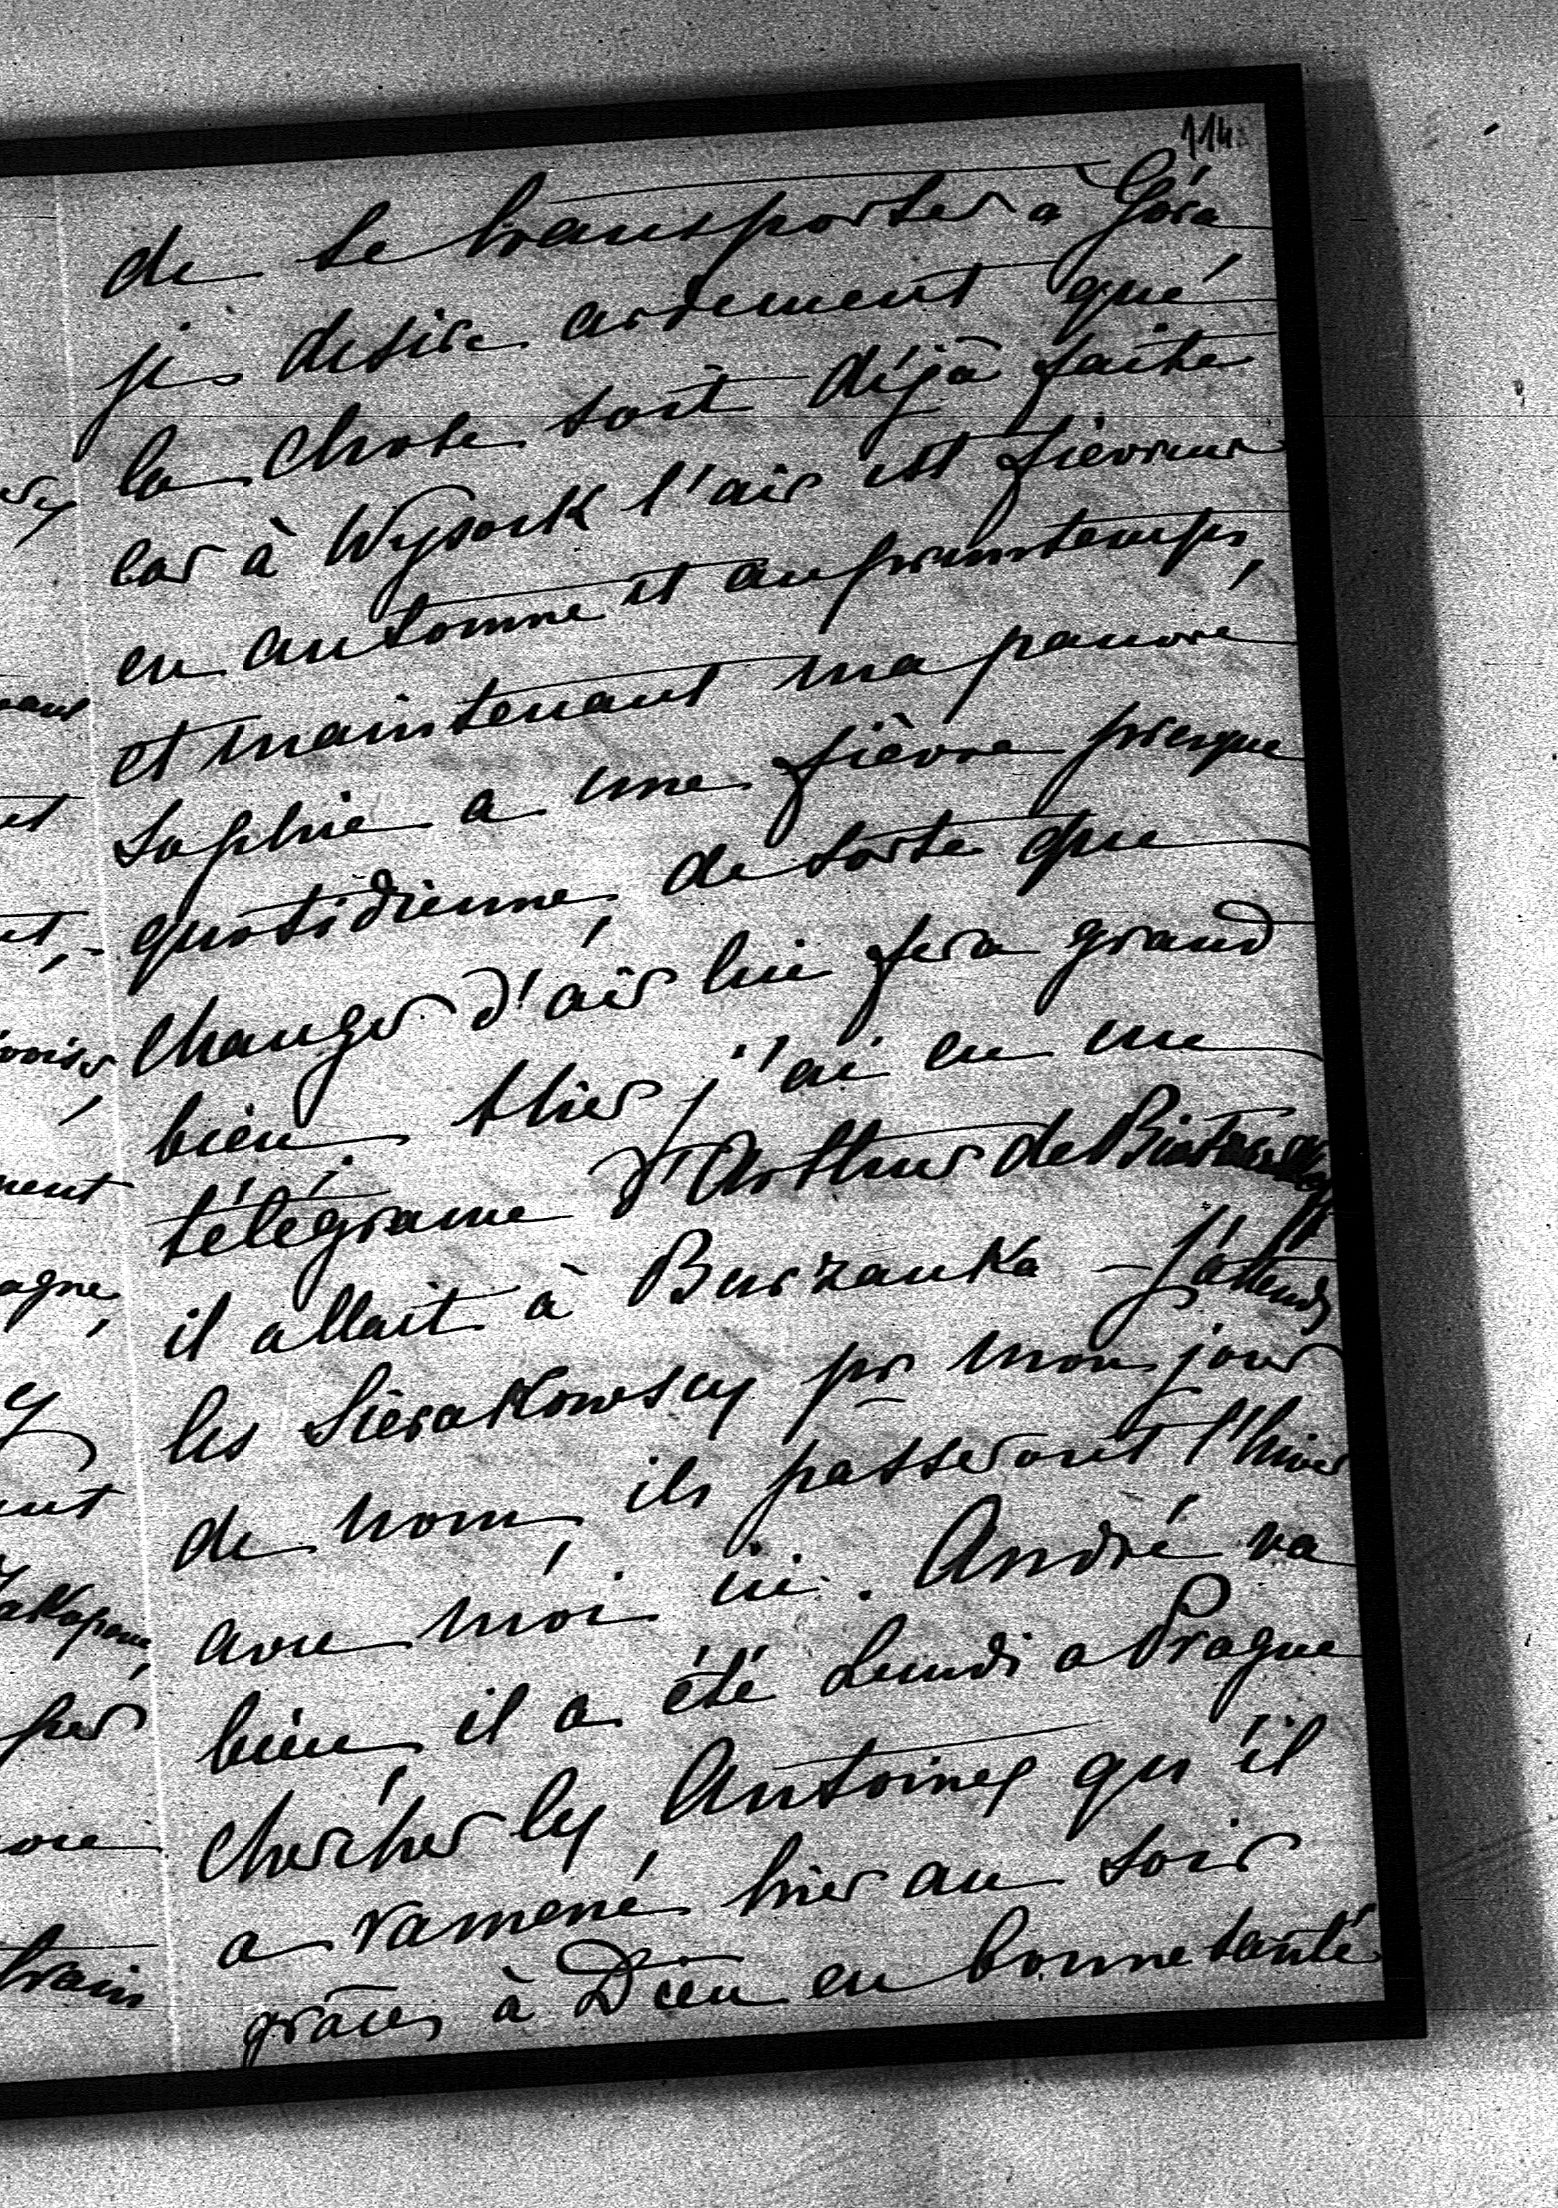 114
de se transporter à Góra
je desire ardement que
la chose soit déjà faite
car à Wysock l'air est fievreux
en automne et au printemps,
et maintenant ma pauvre
Sophie a une fièvre presque
quotidienne, de sorte que
changer d'air lui fera grand
bien. Hier j'ai eu un
télégrame d'Arthur de
il allait à Burzanka – J'attends
les Sierakowscy pr mon jour
de nom, ils passeront l'hiver
avec moi ici. André va
bien, il a été Lundi a Prague
chercher les Antoines qu'il
a ramené, hier au soir
grâces à Dieu en bonne santé